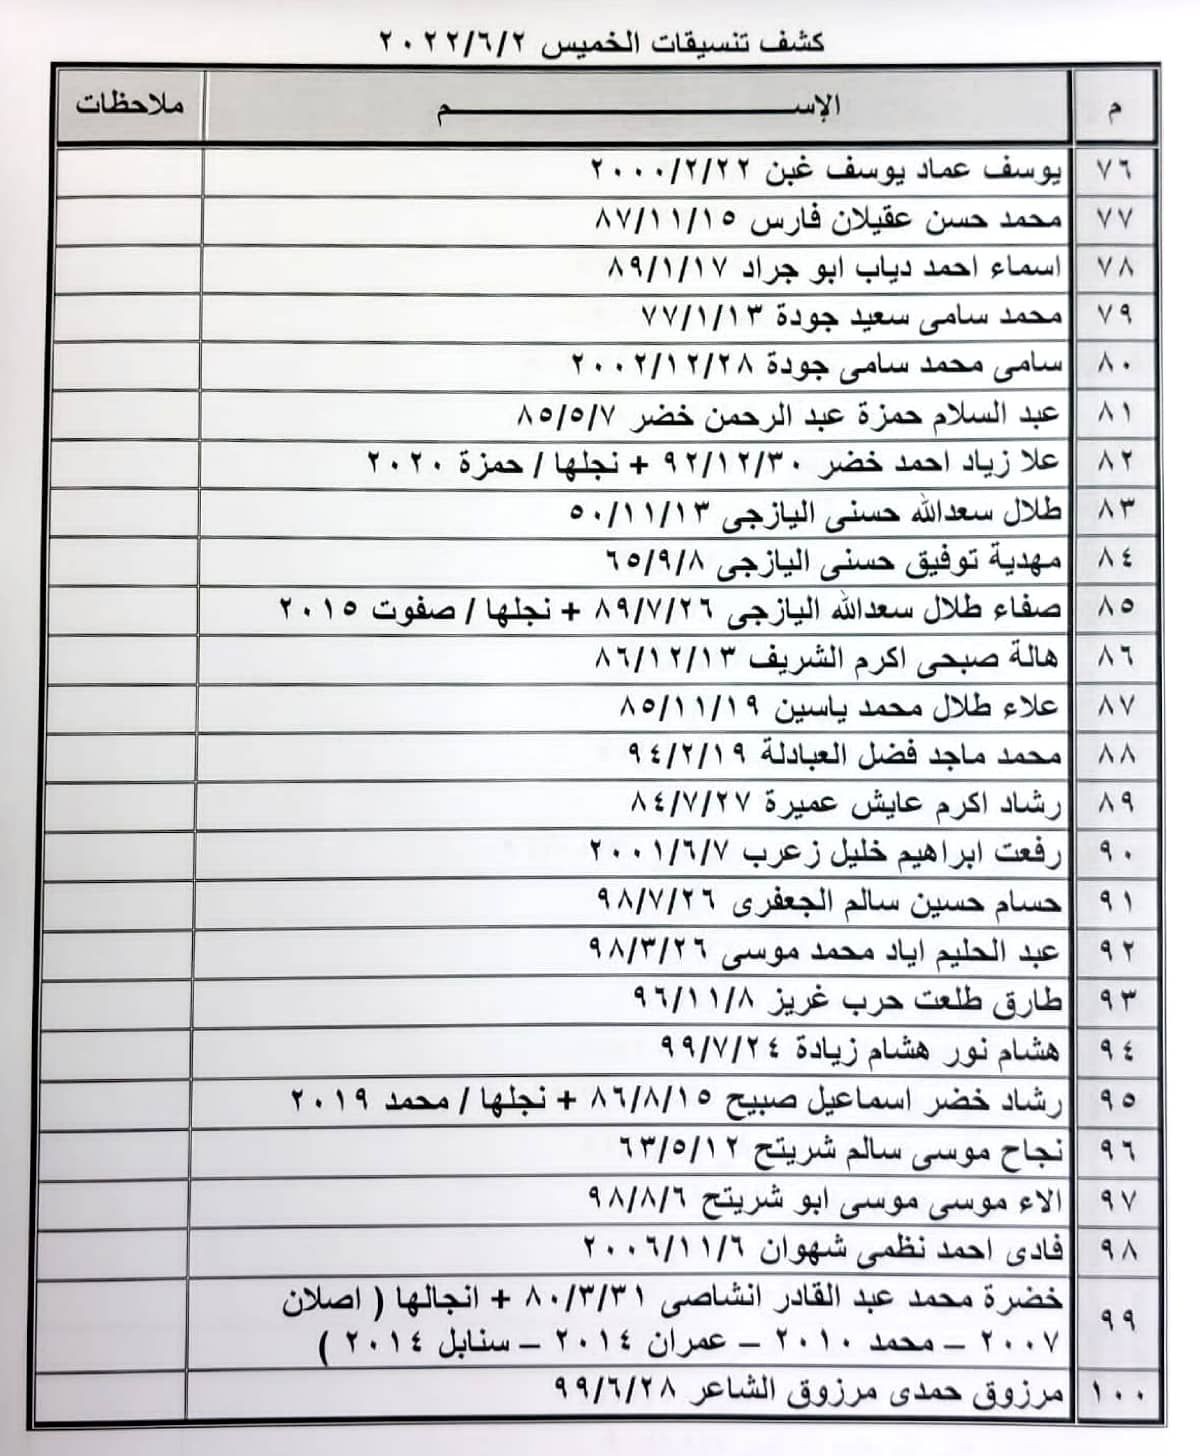 كشف تنسيقات الخميس ٢٠٢٢/٦/٢
م الإســـــم ملاحظات
٧٦ يوسف عماد يوسف غبن ٢٠٠٠/٢/٢٢
٧٧ محمد حسن عقيلان فارس ٨٧/١١/١٥
٧٨ اسماء احمد دياب ابو جراد ٨٩/١/١٧
٧٩ محمد سامى سعيد جودة ٧٧/١/١٣
٨٠ سامى محمد سامى جودة ٢٠٠٢/١٢/٢٨
٨١ عبد السلام حمزة عبد الرحمن خضر ٨٥/٥/٧
٨٢ علا زياد احمد خضر ٩٢/١٢/٣٠ + نجلها / حمزة ٢٠٢٠
٨٣ طلال سعدالله حسنى اليازجى ٥٠/١١/١٣
٨٤ مهدية توفيق حسنى اليازجى ٦٥/٩/٨
٨٥ صفاء طلال سعدالله اليازجى ٨٩/٧/٢٦ + نجلها / صفوت ٢٠١٥
٨٦ هالة صبحى اكرم الشريف ٨٦/١٢/١٣
٨٧ علاء طلال محمد ياسين ٨٥/١١/١٩
٨٨ محمد ماجد فضل العبادلة ٩٤/٢/١٩
٨٩ رشاد اكرم عايش عميرة ٨٤/٧/٢٧
٩٠ رفعت ابراهيم خليل زعرب ٢٠٠١/٦/٧
٩١ حسام حسين سالم الجعفرى ٩٨/٧/٢٦
٩٢ عبد الحليم اياد محمد موسى ٩٨/٣/٢٦
٩٣ طارق طلعت حرب غريز ٩٦/١١/٨
٩٤ هشام نور هشام زيادة ٩٩/٧/٢٤
٩٥ رشاد خضر اسماعيل صبيح ٨٦/٨/١٥ + نجلها / محمد ٢٠١٩
٩٦ نجاح موسى سالم شريتح ٦٣/٥/١٢
٩٧ الاء موسى موسى ابو شريتح ٩٨/٨/٦
٩٨ فادى احمد نظمى شهوان ٢٠٠٦/١١/٦
٩٩ خضرة محمد عبد القادر انشاصى ٨٠/٣/٣١ + انجالها ( اصلان
٢٠٠٧ – محمد ٢٠١٠ – عمران ٢٠١٤ – سنابل ٢٠١٤ )
١٠٠ مرزوق حمدى مرزوق الشاعر ٩٩/٦/٢٨